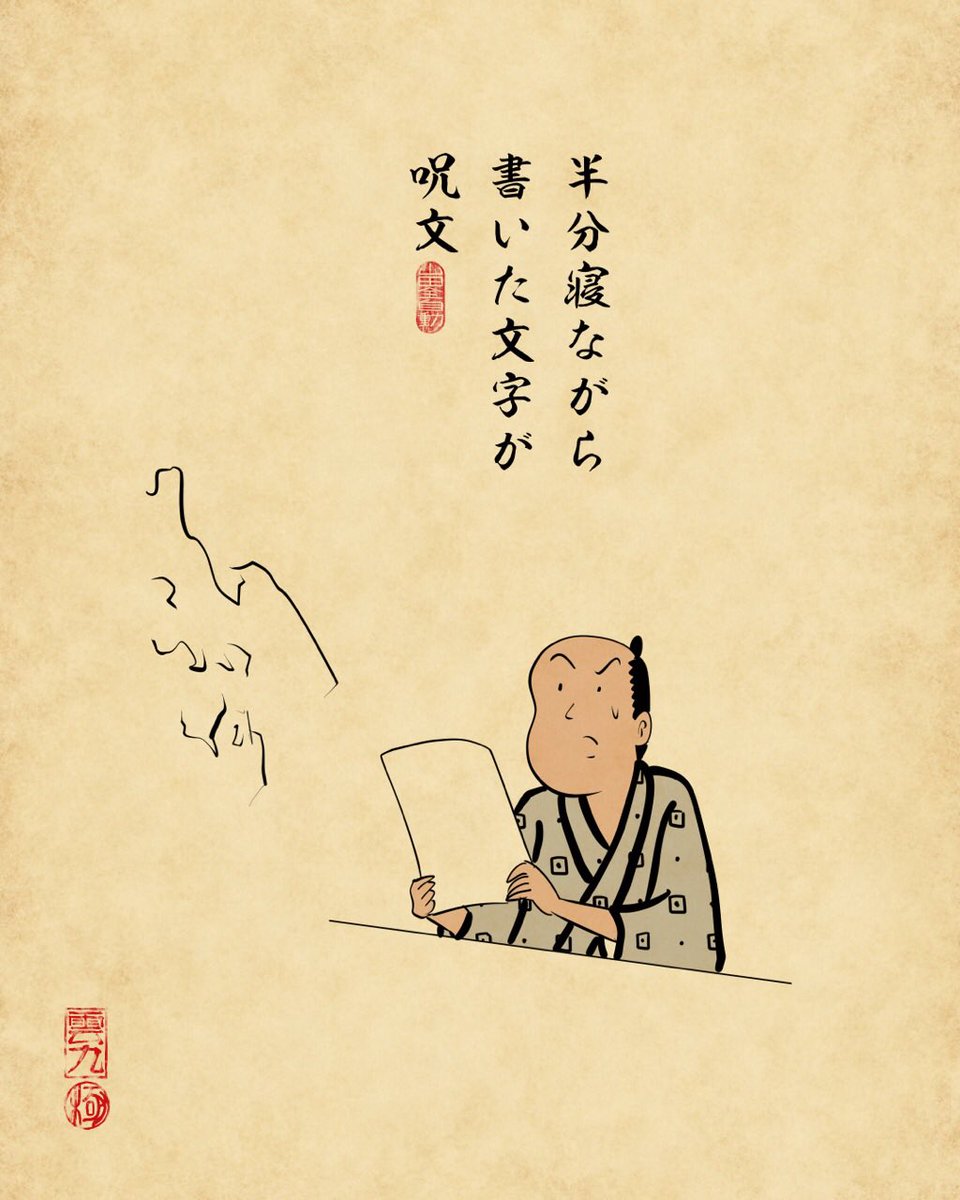 半分寝ながら
書いた文字が
呪文